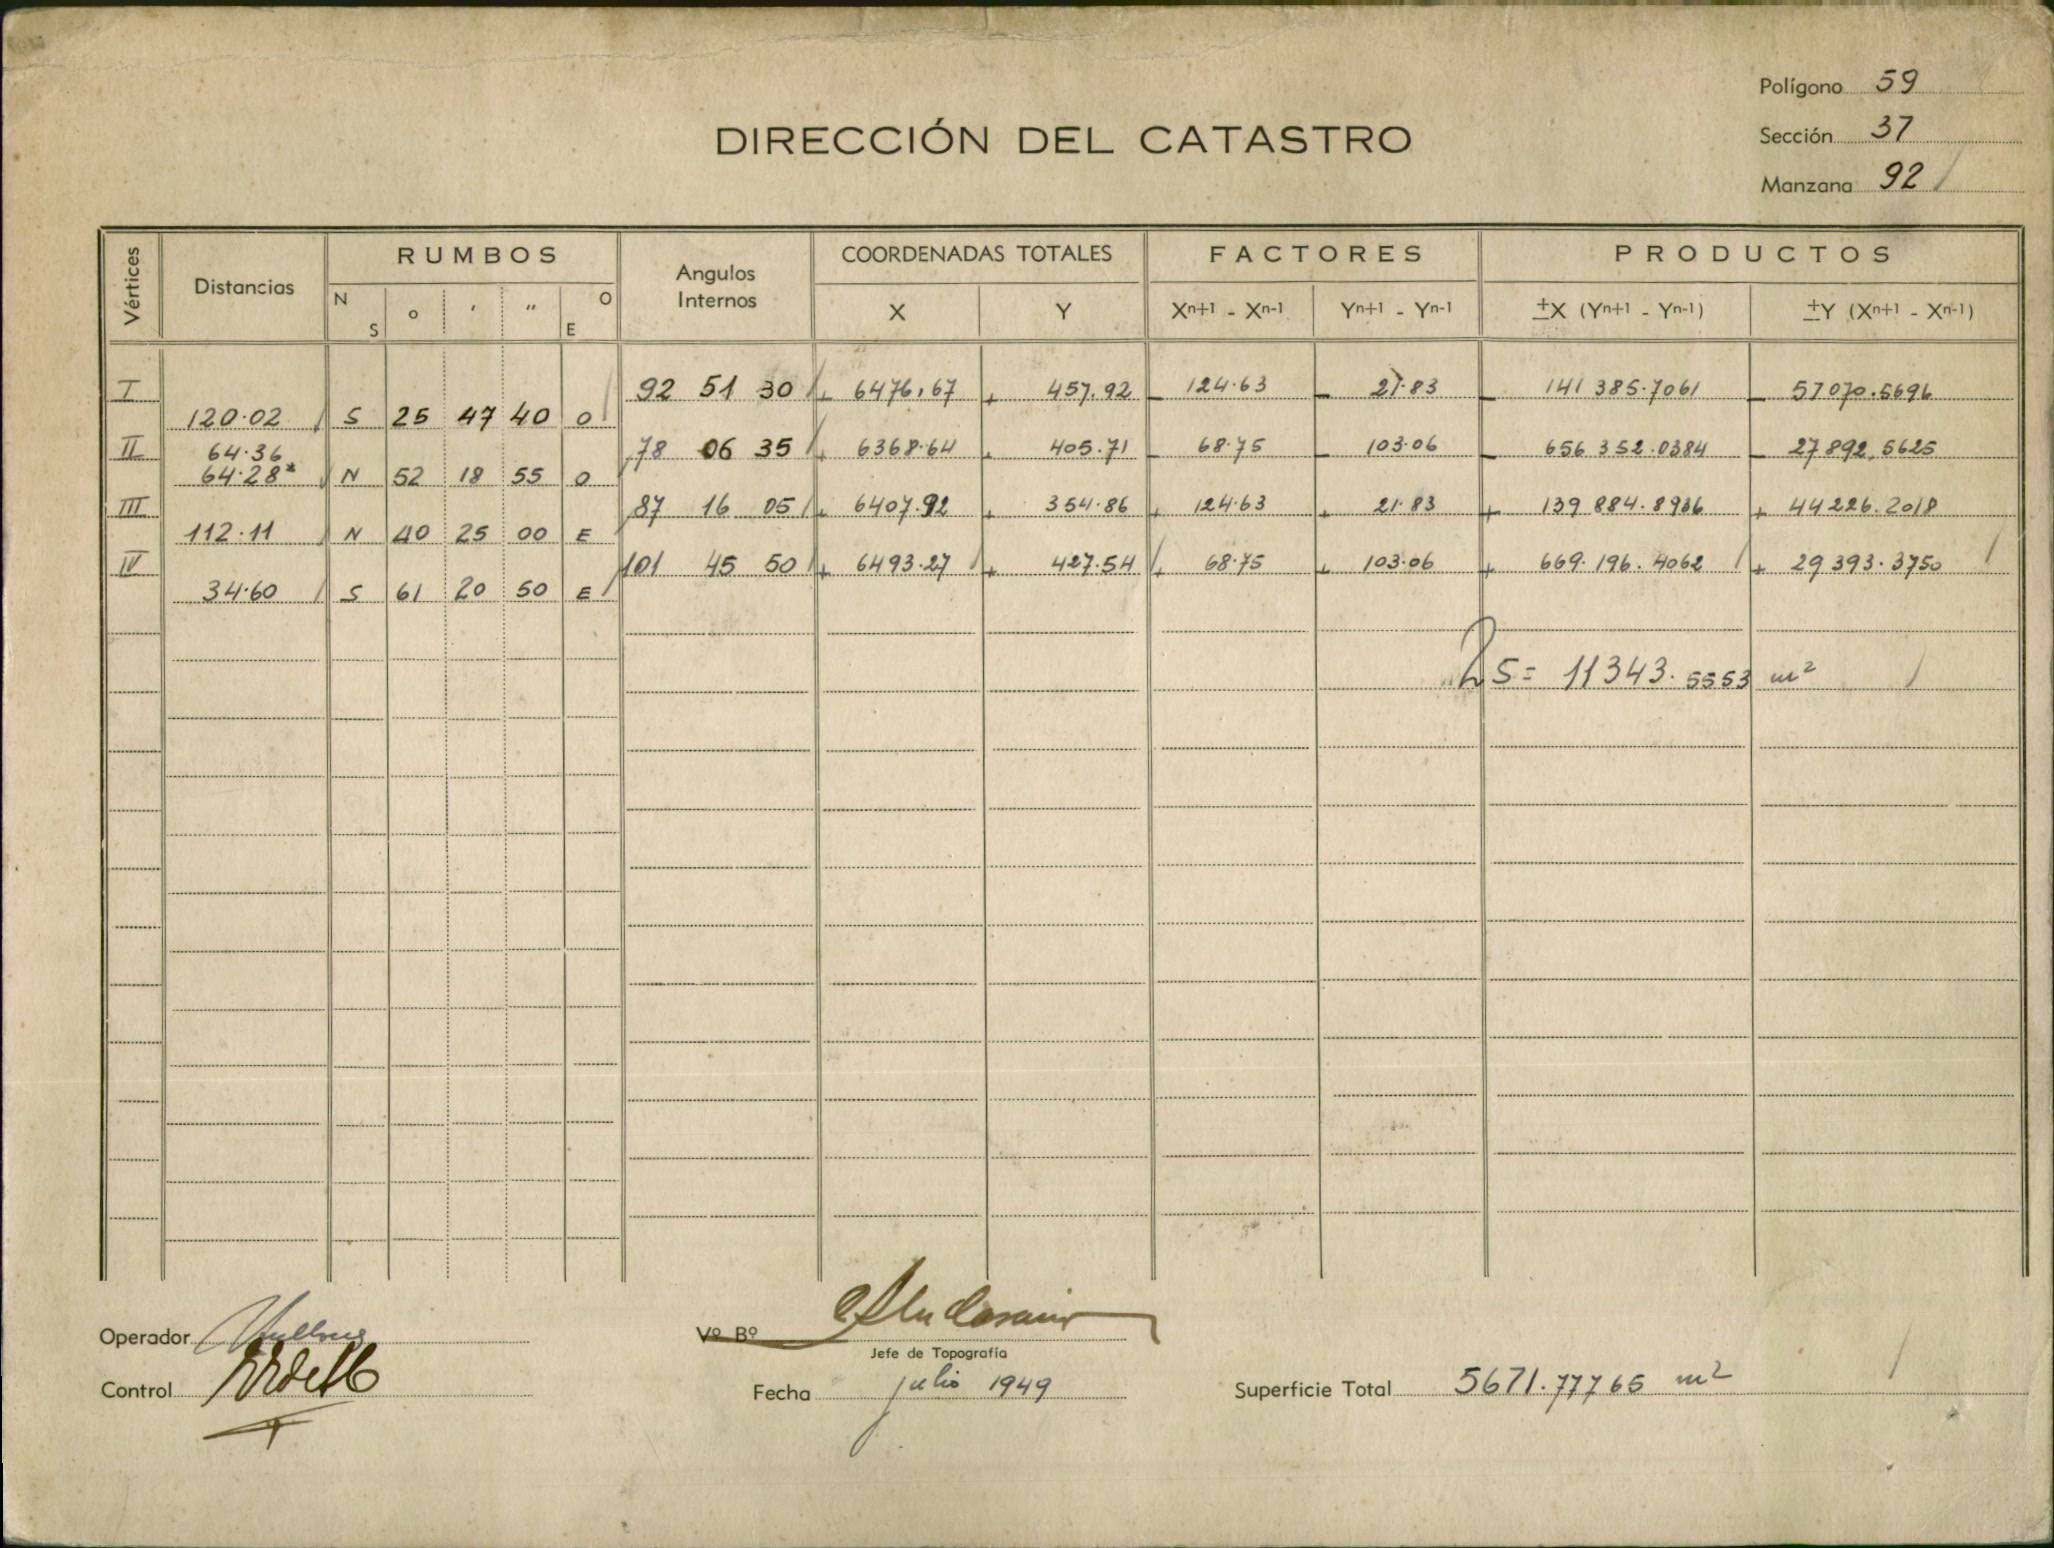 Polígono 59
DIRECCIÓN DEL CATASTRO
Sección 37
Manzana 92
Vértices Distancias RUMBOS Angulos Internos COORDENADAS TOTALES FACTORES PRODUCTOS
N S o ' " E O X Y Xn+1 - Xn-1 Yn+1 - Yn-1 ±X (Yn+1 - Yn-1) ±Y (Xn+1 - Xn-1)
I 92 51 30 + 6476,67 + 457.92 - 124.63 - 21.83 - 141 385.7061 - 57070.5696
120.02 S 25 47 40 O
II 78 06 35 + 6368.64 + 405.71 - 68.75 - 103.06 - 656 352.0384 - 27892.5625
64.36
64.28* N 52 18 55 O
III 87 16 05 + 6407.92 + 354.86 + 124.63 + 21.83 + 139 884.8936 + 44226.2018
112.11 N 40 25 00 E
IV 101 45 50 + 6493.27 + 427.54 + 68.75 + 103.06 + 669.196.4062 + 29393.3750
34.60 S 61 20 50 E
2S= 11343.5553 m²
Operador
Vº Bº
Jefe de Topografía
Control
Fecha julio 1949
Superficie Total 5671.77765 m²